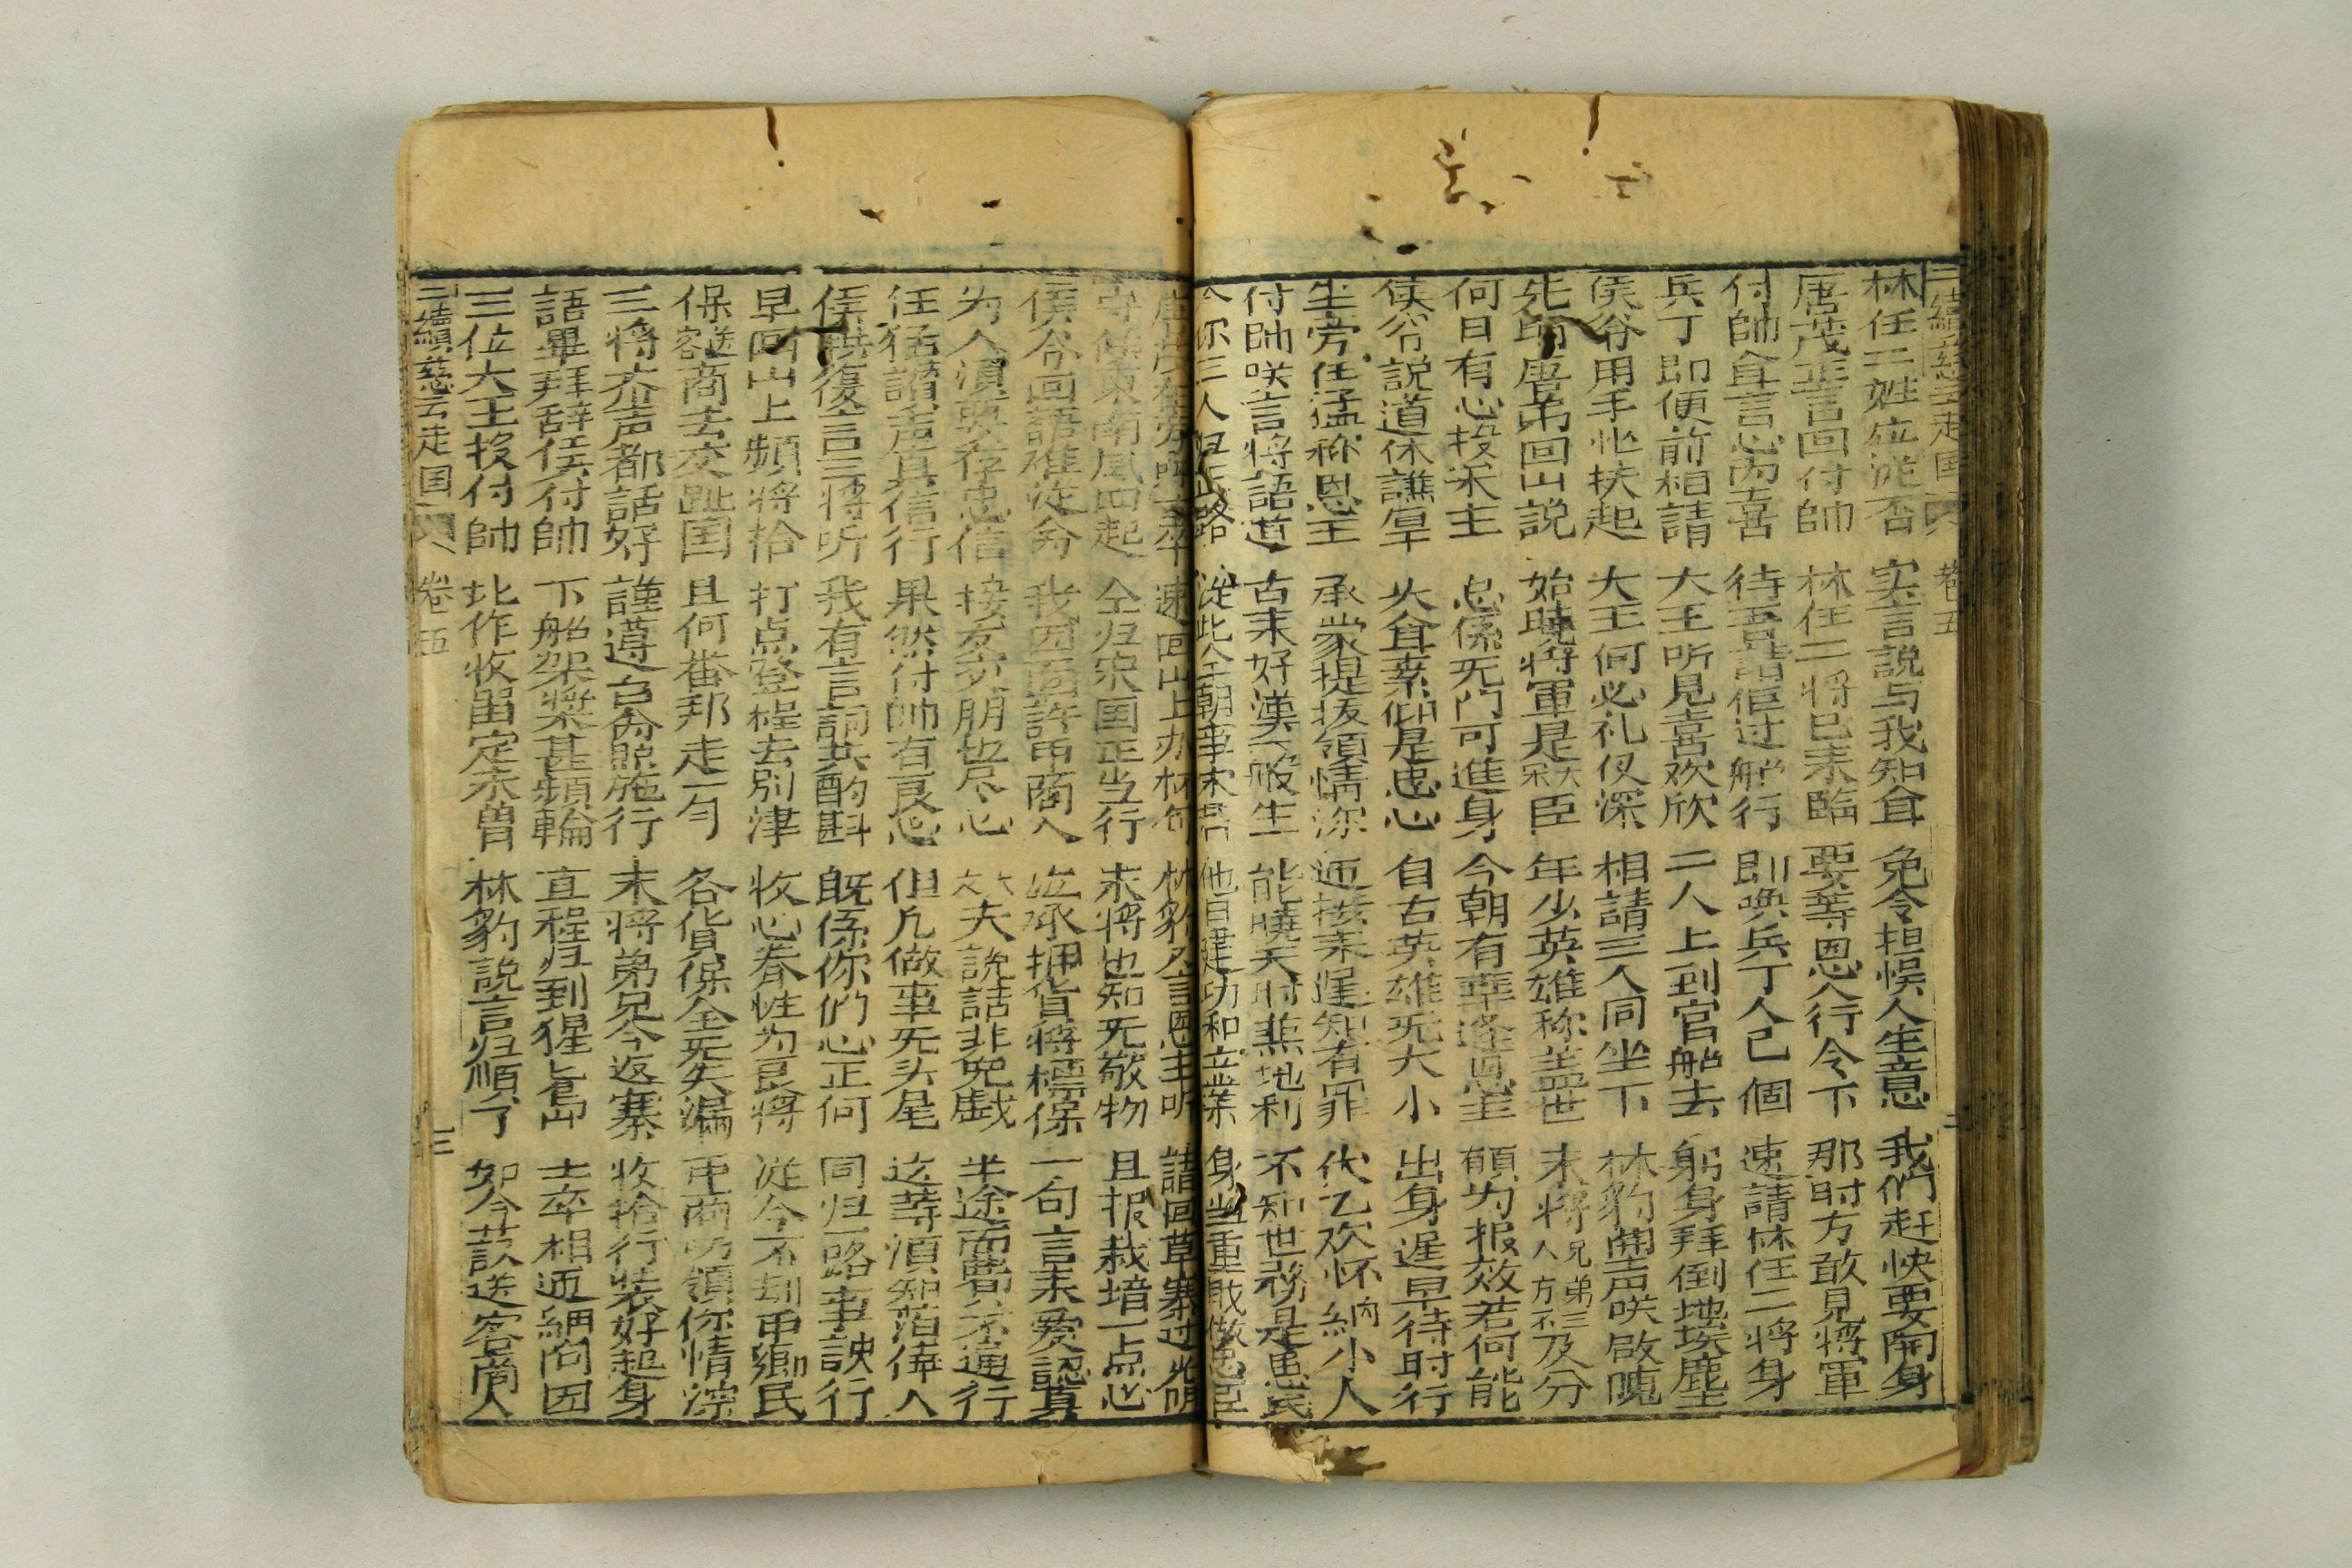 三續慈云走国 卷五 二
林任二姓应従否 実言説与我知耳 免令担悮人生意 我們赶快要開身
唐茂正言回付帥 林任二将已来臨 要等恩公行令下 那时方敢見将軍
付帥耳言心内喜 待吾請佢过船行 即喚兵丁人已個 速請林任二将身
兵丁即便前相請 大王听見喜欢欣 二人上到官船去 躬身拜倒地埃塵
侯爷用手忙扶起 大王何必礼仪深 相請三人同坐下 林豹開声咲啟唍
先師唐弟回山説 始暁将軍是大宋臣 年少英雄称盖世 末将兄弟三人方不及分
何日有心投宋主 总係旡门可進身 今朝有幸逢恩主 愿为报效若何能
侯爷説道休謙字 久耳素仰是忠心 自古英雄旡大小 出身遲早待时行
坐旁任猛称恩主 承蒙提拔領情深 迊接来遲知有罪 伏乞欢怀納内小人
付帥咲言将語道 古来好漢一般生 能曉天时兼地利 不知世務是愚民
今你三人归正路 従此全朝事宋君 他日建功和立業 身当重敗做忠臣
速回山上办林 林豹 言恩主听 請回草寨过光明
守候東南風四起 仝归宋国正当行 末将也知旡敬物 且报栽培一点心
侯爷回語难従命 我因面許甲商人 应承押貨将標保 一句言来爱認真
为人須要存忠信 接友交朋也尽心 大丈夫説話非児戯 半途而費不通行
任猛讃声真信行 果然付帥有良心 但凡做事旡头尾 这等須知落俾人
侯爷復言三将听 我有言詞共酌斟 既係你們心正向 同归一路事諛行
早回山上頻将拾 打点登程去別津 收心養性为良将 従今不刼甲鄉民
保送客商去交趾国 且何番邦走一勻 各貨保全旡失漏 甲商叻領你情深
三将齐声都話好 謹遵台命照施行 末将弟兄今返寨 收拾行装好起身
語畢拜辞侯付帥 下船架槳甚頻輪 直程归到猩猩山 士卒相迊細问因
三位大王投付帥 此作收留定未曽 林豹説言归順了 如今苡送客商人
三續慈云走国 卷五 三